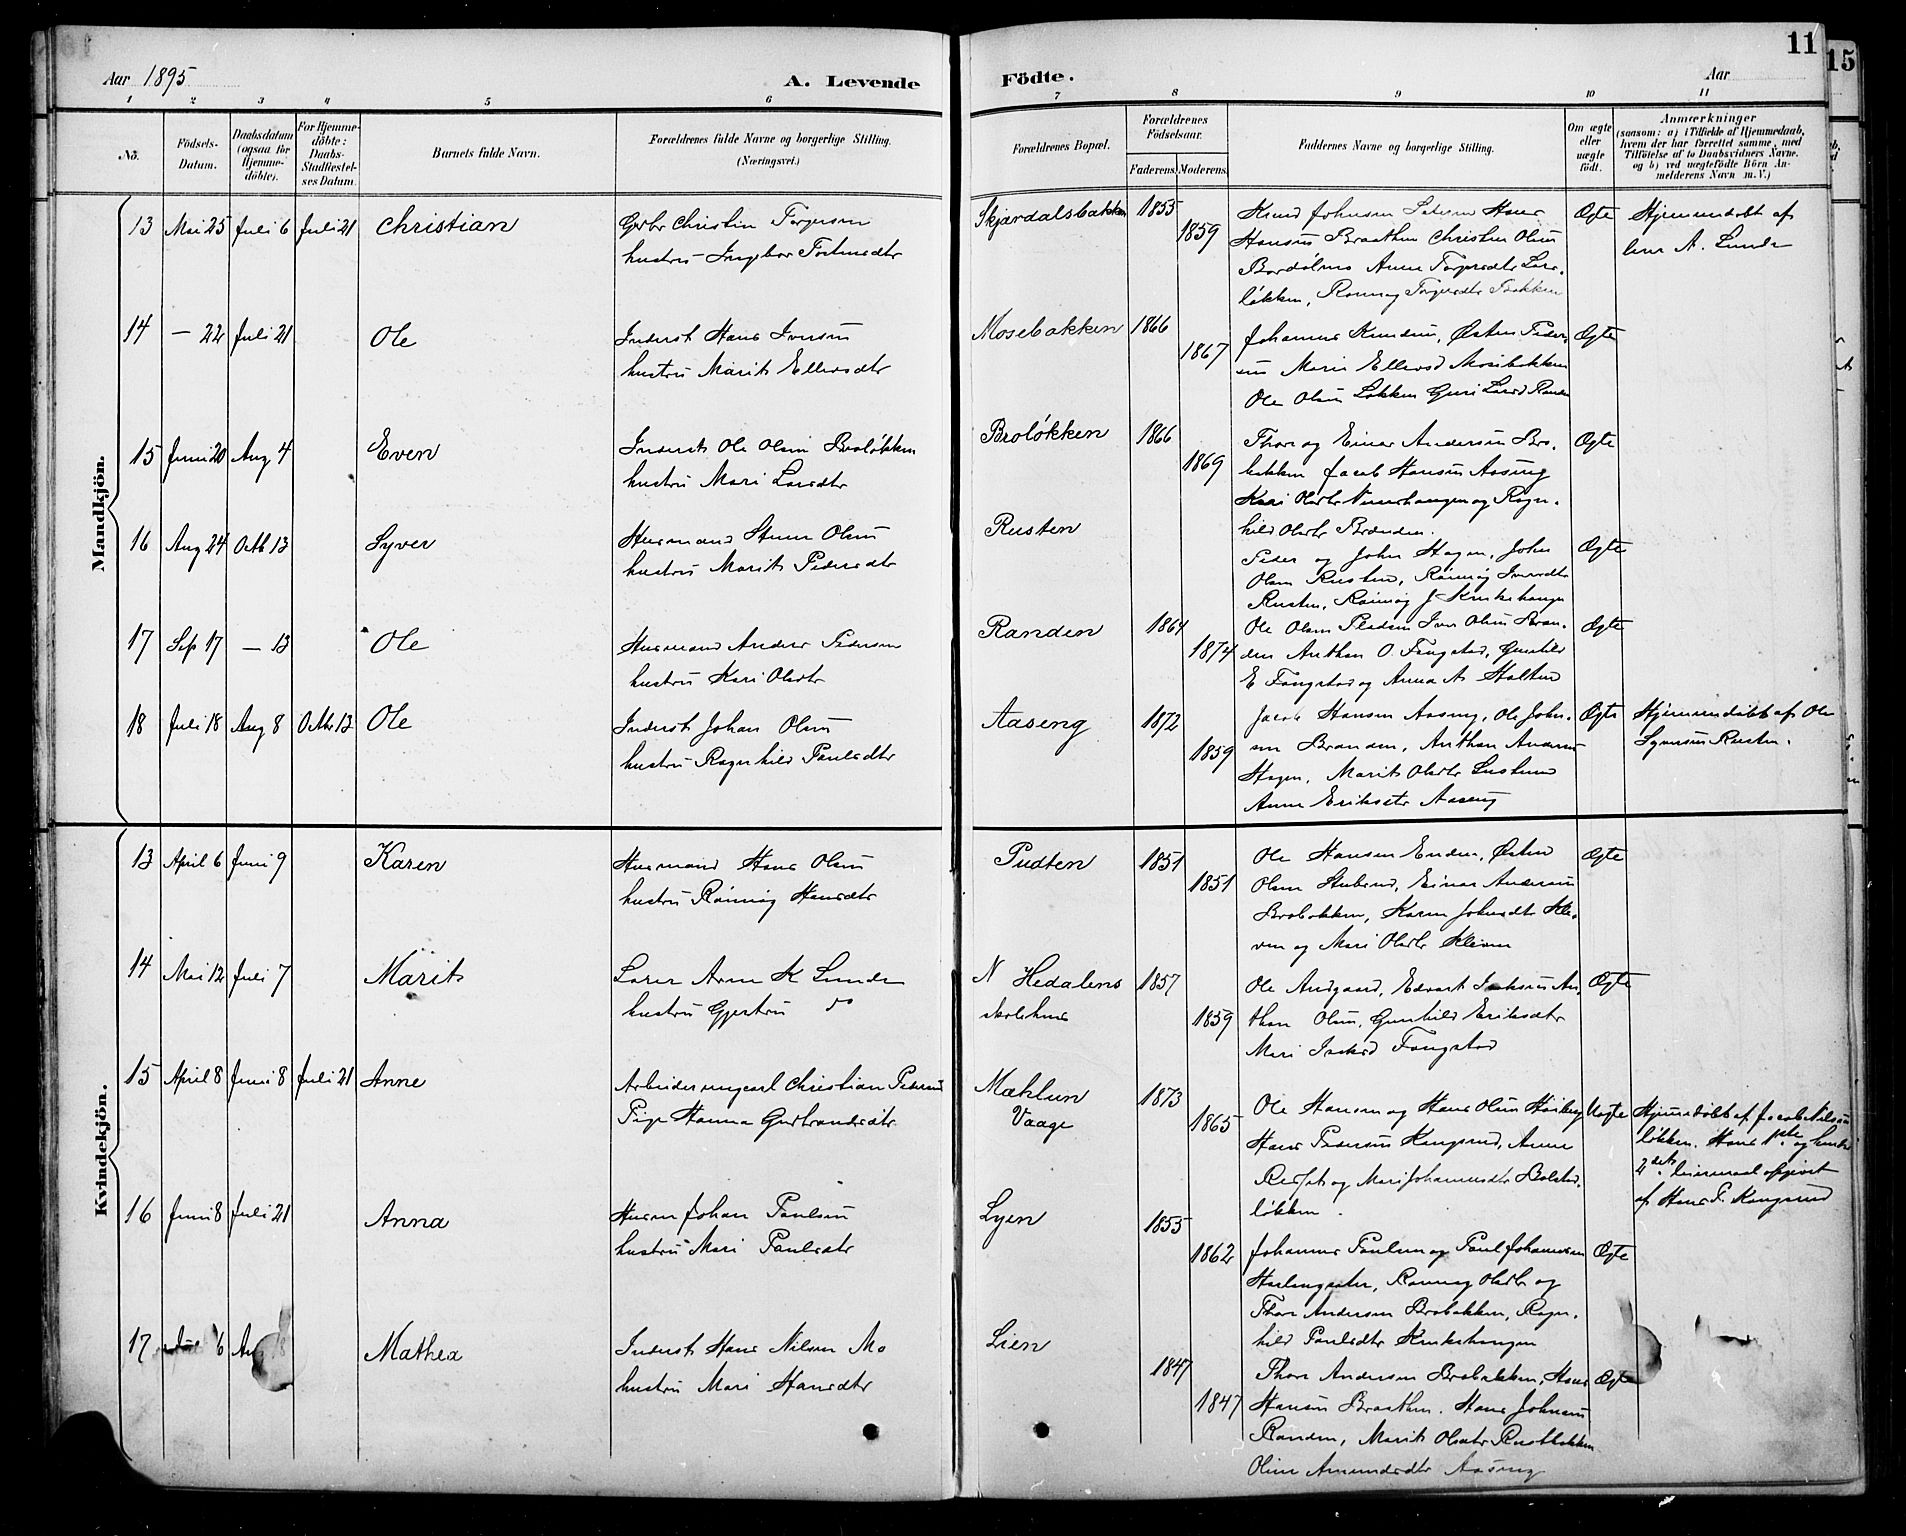 11
15
Aar 1895
A. Levende
Födte.
Aar
1 2 3 4 5 6 7 8 9 10 11
No.
Födsels-Datum.
Daabsdatum (ogsaa for Hjemme-döbte).
For Hjemme-döbte: Daabs-Stadfæstel-ses Datum.
Barnets fulde Navn.
Forældrenes fulde Navne og borgerlige Stilling. (Næringsvei.)
Forældrenes Bopæl.
Forældrenes Födselsaar.
Faderens. Moderens.
Faddernes Navne og borgerlige Stilling.
Om ægte eller uægte födt.
Anmærkninger
(saasom: a) i Tilfælde af Hjemmedaab,
hvem der har forrettet samme, med
Tilföielse af to Daabsvidners Navne.
og b) ved uægtefödte Börn An-
melderens Navn m. V.)
Mandkjön.
13 Mai 25 Juli 6 Juli 21 Christian
Gbr Christen Torgersen
hustru Ingebor
Skjærdalsbakken 1855
1859
Knud Johnsen Hans
Hansen Braathen Christen Olsen
Anne Torgersdtr
løkken, Rønnog Torgersdtr Bakken
Ægte
Hjemmedøbt af
lærer A. Lunde
14 — 22 Juli 21 Ole
Inderst Hans Iversen
hustru Marit Ellersdtr
Mosebakken 1866
1867
Johannes Knudsen, Østen Peder-
sen Mari Ellersd Mosebakken
Ole Olsen Løkken Guri Larsd Randen
Ægte
15 Juni 20 Aug 4 Even
Inderst Ole Olsen Broløkken
hustru Mari Larsdtr
Broløkken 1866
1869
Thor og Einar Andersen Bro-
bakken Jacob Hansen Aaseng
Kari Olsdtr og Ragn-
hild Olsdtr Brænden.
Ægte
16 Aug 24 Octb 13 Syver
Husmand Olsen
hustru Marit Pedersdtr
Rusten
Peder og John Hagen, John
Olsen Rusten, Rønnog Iversdtr
Rusten, Rønnog J Krukehaugen
Ægte
17 Sep 17 — 13 Ole
Husmand Anders Pedersen
hustru Kari Olsdtr
Randen 1864
1874
Ole Olsen Iver Olsen Bran-
den Anthon O. Fangstad, Gunhild
E Fangstad og Anna A Holten
Ægte
18 Juli 18 Aug 8 Octbr 13 Ole
Inderst Johan Olsen
hustru Ragnhild Paulsdtr
Aaseng 1872
1859
Jacob Hansen Aaseng, Ole John-
sen Brænden, Anthon Andersen
Hagen, Marit Olsdtr
Anne Eriksdtr Aaseng
Ægte
Hjemmedøbt af Ole
Syversen Rusten.
Kvindekjön.
13 April 6 Juni 9 Karen
Husmand Hans Olsen
hustru Rønnog Hansdtr
Pudten 1851
1851
Ole Hansen Enden, Østen
Olsen Stubrud, Einar Andersen
Brobakken, Karen Johnsdtr Kle-
ven og Mari Olsdtr Kleven
Ægte
14 Mai 12 Juli 7 Marit
Lærer Arne K Lunde
hustru Gjertru do
N Hedalens
skolehus
1857
1859
Ole Andgaard, Edvart Isaksen An-
thon Olsen, Gunhild Eriksdtr
Mari Isaksd Fangstad
Ægte
15 April 8 Juni 8 Juli 21 Anne
Arbeider ungcarl Christian Pedersen
Pige Hanna Guthrandsdtr.
Mæhlun
Vaage
1873
1865
Ole Hansen og Hans Olsen
Hans Pedersen Kongsrud, Anne
og Mari Johannesdtr Bolstad-
løkken.
Uægte
Hjemmedøbt af Jacob Nilsen
løkken. Hans 1ste og hendes
2det leiermaal opgivet
af Hans P. Kongsrud
16 Juni 8 Juli 21 Anna
Husm Johan Paulsen
hustru Mari Paulsdtr
Lyen 1855
1862
Johannes Paulsen og Paul Johannesen
Rønnog Olsdtr og
Thor Andersen Brobakken, Ragn-
hild Paulsdtr Krukehaugen
Ægte
17 6 Mathea
Inderst Hans Nilsen Mo
hustru Mari Hansdtr
Lien
1847
1847
Thor Andersen Brobakken, Hans
Hansen Braathen. Hans Johnsen
Randen, Marit Olsdtr Rustbakken
Oline Amundsdtr Aaseng
Ægte